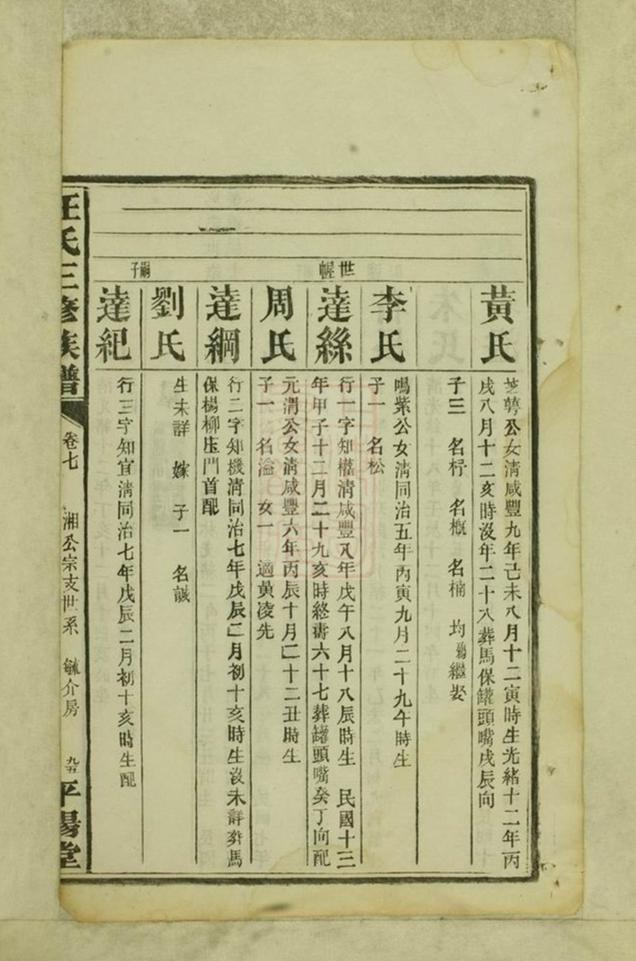 黃氏
芝蕚公女清咸豐九年己未八月十二寅時生光緒十二年丙
戌八月十二亥時沒年二十八葬馬保罐頭嘴戌辰向
子三 名杍 名概 名楠 均殤繼娶
世幄
李氏
鳴紫公女清同治五年丙寅九月二十九午時生
子一 名松
達絲
行一字知構清咸豐八年戊午八月十八辰時生 民國十三
年甲子十二月二十九亥時終壽六十七葬罐頭嘴癸丁向配
周氏
元渭公女清咸豐六年丙辰十月二十二丑時生
子一 名溢 女一 適黃凌先
達綱
行二字知機清同治七年戊辰二月初十亥時生沒未詳葬馬
保楊柳庄門首配
劉氏
生未詳 嫁 子一 名誠
嗣子
達紀
行三字知宜清同治七年戊辰二月初十亥時生配
汪氏三修族譜
卷七
湘公宗支世系 毓介房
九五
平陽堂